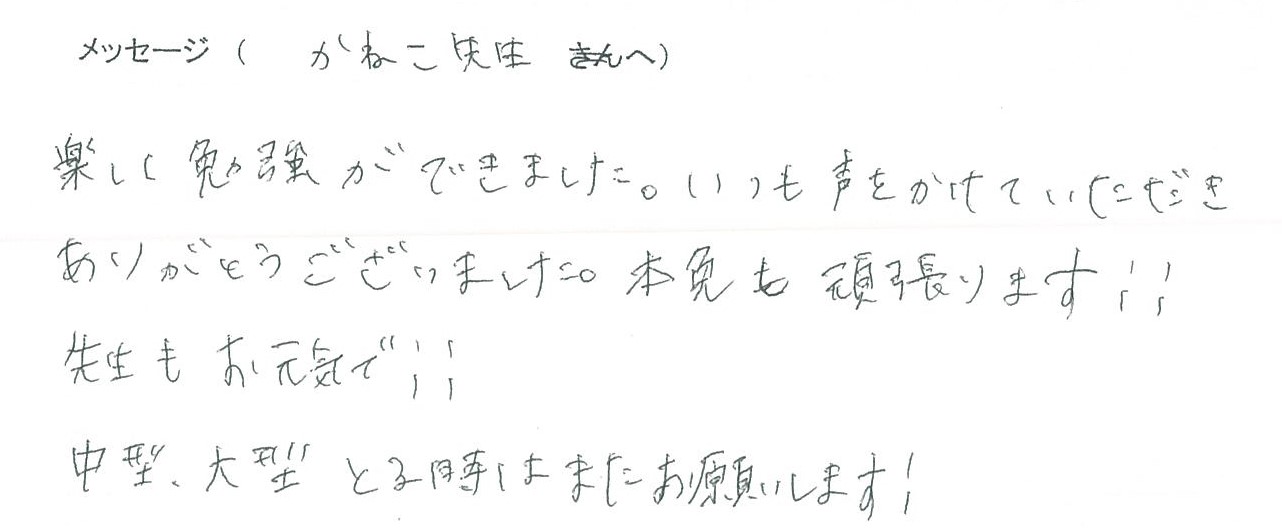 メッセージ（ かねこ先生 さんへ）
楽しく勉強ができました。いつも声をかけていただき
ありがとうございました。本免も頑張ります!!
先生もお元気で!!
中型、大型とる時はまたお願いします!